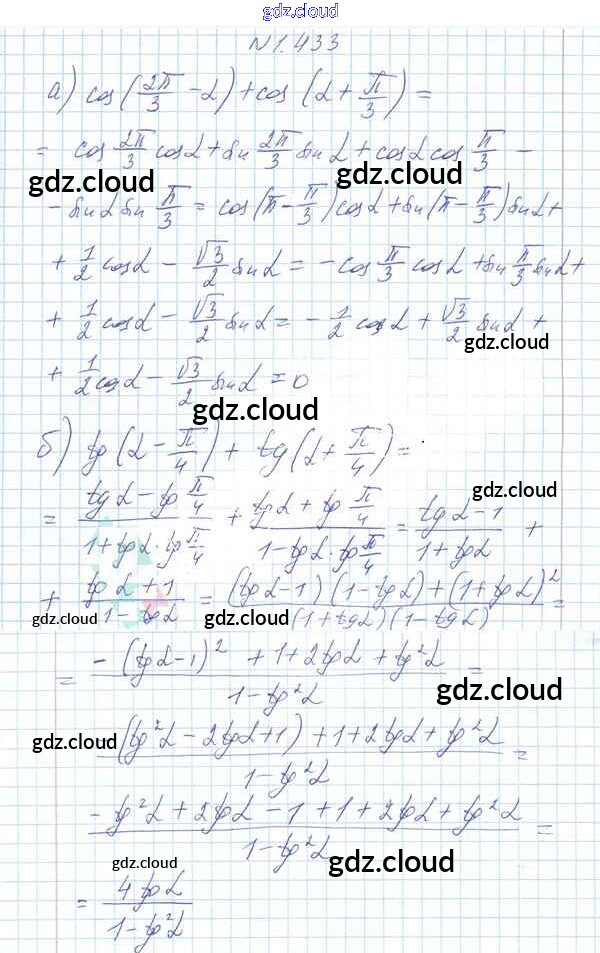 gdz.cloud
N1.433
а) cos(2π/3 - α) + cos(α + π/3) =
= cos 2π/3 cosα + sin 2π/3 sinα + cosα cos π/3 -
gdz.cloud gdz.cloud
- sinα sin π/3 = cos(π - π/3) cosα + sin(π - π/3) sinα +
+ 1/2 cosα - √3/2 sinα = -cos π/3 cosα + sin π/3 sinα +
+ 1/2 cosα - √3/2 sinα = -1/2 cosα + √3/2 sinα +
gdz.cloud
+ 1/2 cosα - √3/2 sinα = 0
gdz.cloud
б) tg(α - π/4) + tg(α + π/4) =
gdz.cloud
= (tgα - tg π/4)/(1 + tgα · tg π/4) + (tgα + tg π/4)/(1 - tgα · tg π/4) = (tgα - 1)/(1 + tgα) +
+ (tgα + 1)/(1 - tgα) = ((tgα - 1)(1 - tgα) + (1 + tgα)²)/((1 + tgα)(1 - tgα)) =
gdz.cloud gdz.cloud
= (-(tgα - 1)² + 1 + 2tgα + tg²α)/(1 - tg²α) =
gdz.cloud
(tg²α - 2tgα + 1) + 1 + 2tgα + tg²α)/(1 - tg²α) =
gdz.cloud
(-tg²α + 2tgα - 1 + 1 + 2tgα + tg²α)/(1 - tg²α) =
gdz.cloud gdz.cloud
= 4tgα/(1 - tg²α)